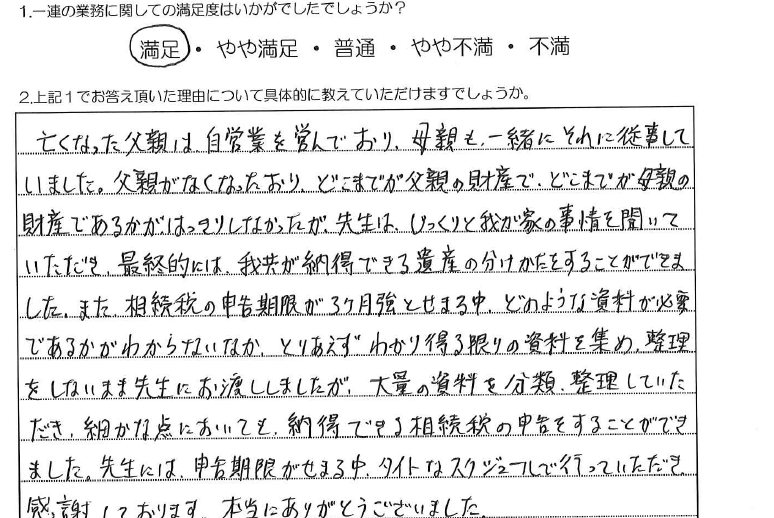 1.一連の業務に関しての満足度はいかがでしたでしょうか?
満足・やや満足・普通・やや不満・不満
2.上記1でお答え頂いた理由について具体的に教えていただけますでしょうか。
亡くなった父親は、自営業を営んでおり、母親も、一緒にそれに従事して
いました。父親がなくなったおり、どこまでが父親の財産で、どこまでが母親の
財産であるかがはっきりしなかったが、先生は、じっくりと我が家の事情を聞いて
いただき、最終的には、我共が納得できる遺産の分けかたをすることができま
した。また、相続税の申告期限が3ケ月強とせまる中、どのような資料が必要
であるかがわからないなか、とりあえずわかり得る限りの資料を集め、整理
をしないまま先生にお渡ししましたが、大量の資料を分類、整理していた
だき、細かな点においても、納得できる相続税の申告をすることができ
ました。先生には、申告期限がせまる中、タイトなスケジュールで行っていただき
感謝しております。本当にありがとうございました。